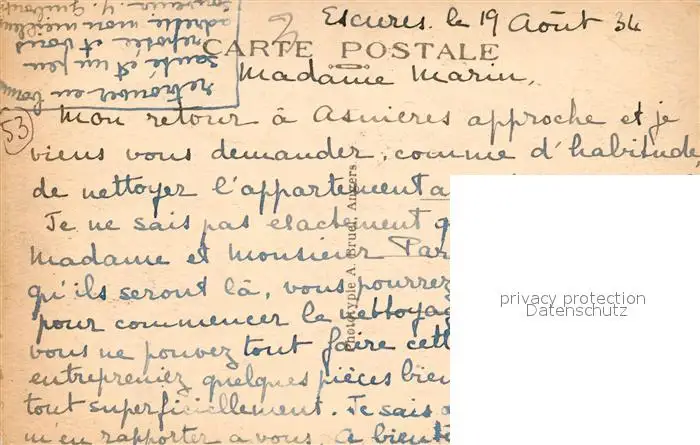 Escures. le 19 Août 34
CARTE POSTALE
Madame Marin,
Mon retour à Asnières approche et je
viens vous demander, comme d'habitude,
de nettoyer l'appartement a
Je ne sais pas exactement q
Madame et Monsieur Par
qu'ils seront là, vous pourrez
pour commencer le nettoyag
vous ne pouvez tout faire cett
entrepreniez quelques pièces bien
tout superficiellement. Je sais
m'en rapporter à vous. A bient
retrouver en bonne
santé et un peu
reposée et vous
adresse mon meilleur
souvenir. Y.
53
2
Phototypie A. Bruel, Angers
privacy protection
Datenschutz